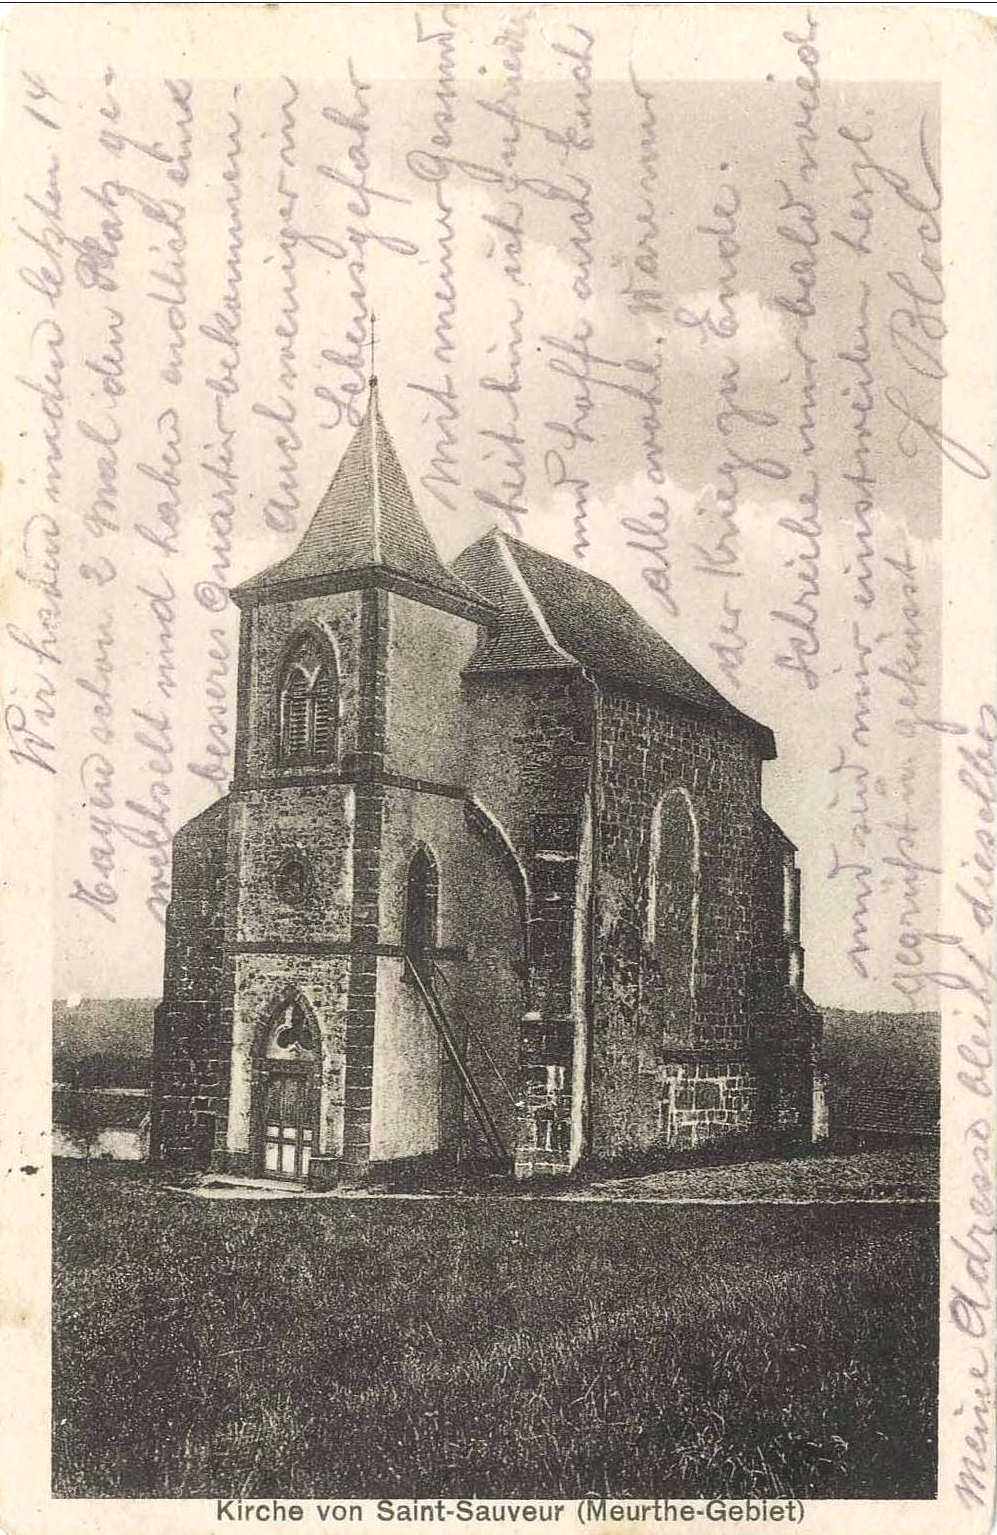 Wir haben in den letzten 14
Tagen schon 2 mal den Platz ge-
wechselt und haben endlich eine
besseres Quartir bekommen.
Auch weniger in
Lebensgefahr
Mit meiner Gesund
heit bin ich zufrieden
und hoffe auch Euch
alle wohl. Wäre nur
der Krieg zu Ende.
Schreibe mir bald wieder
und sid mir einstweilen herzl.
gegrüßt u geküsst
J Bloch
meine Adresse bleibt dieselbe
Kirche von Saint-Sauveur (Meurthe-Gebiet)